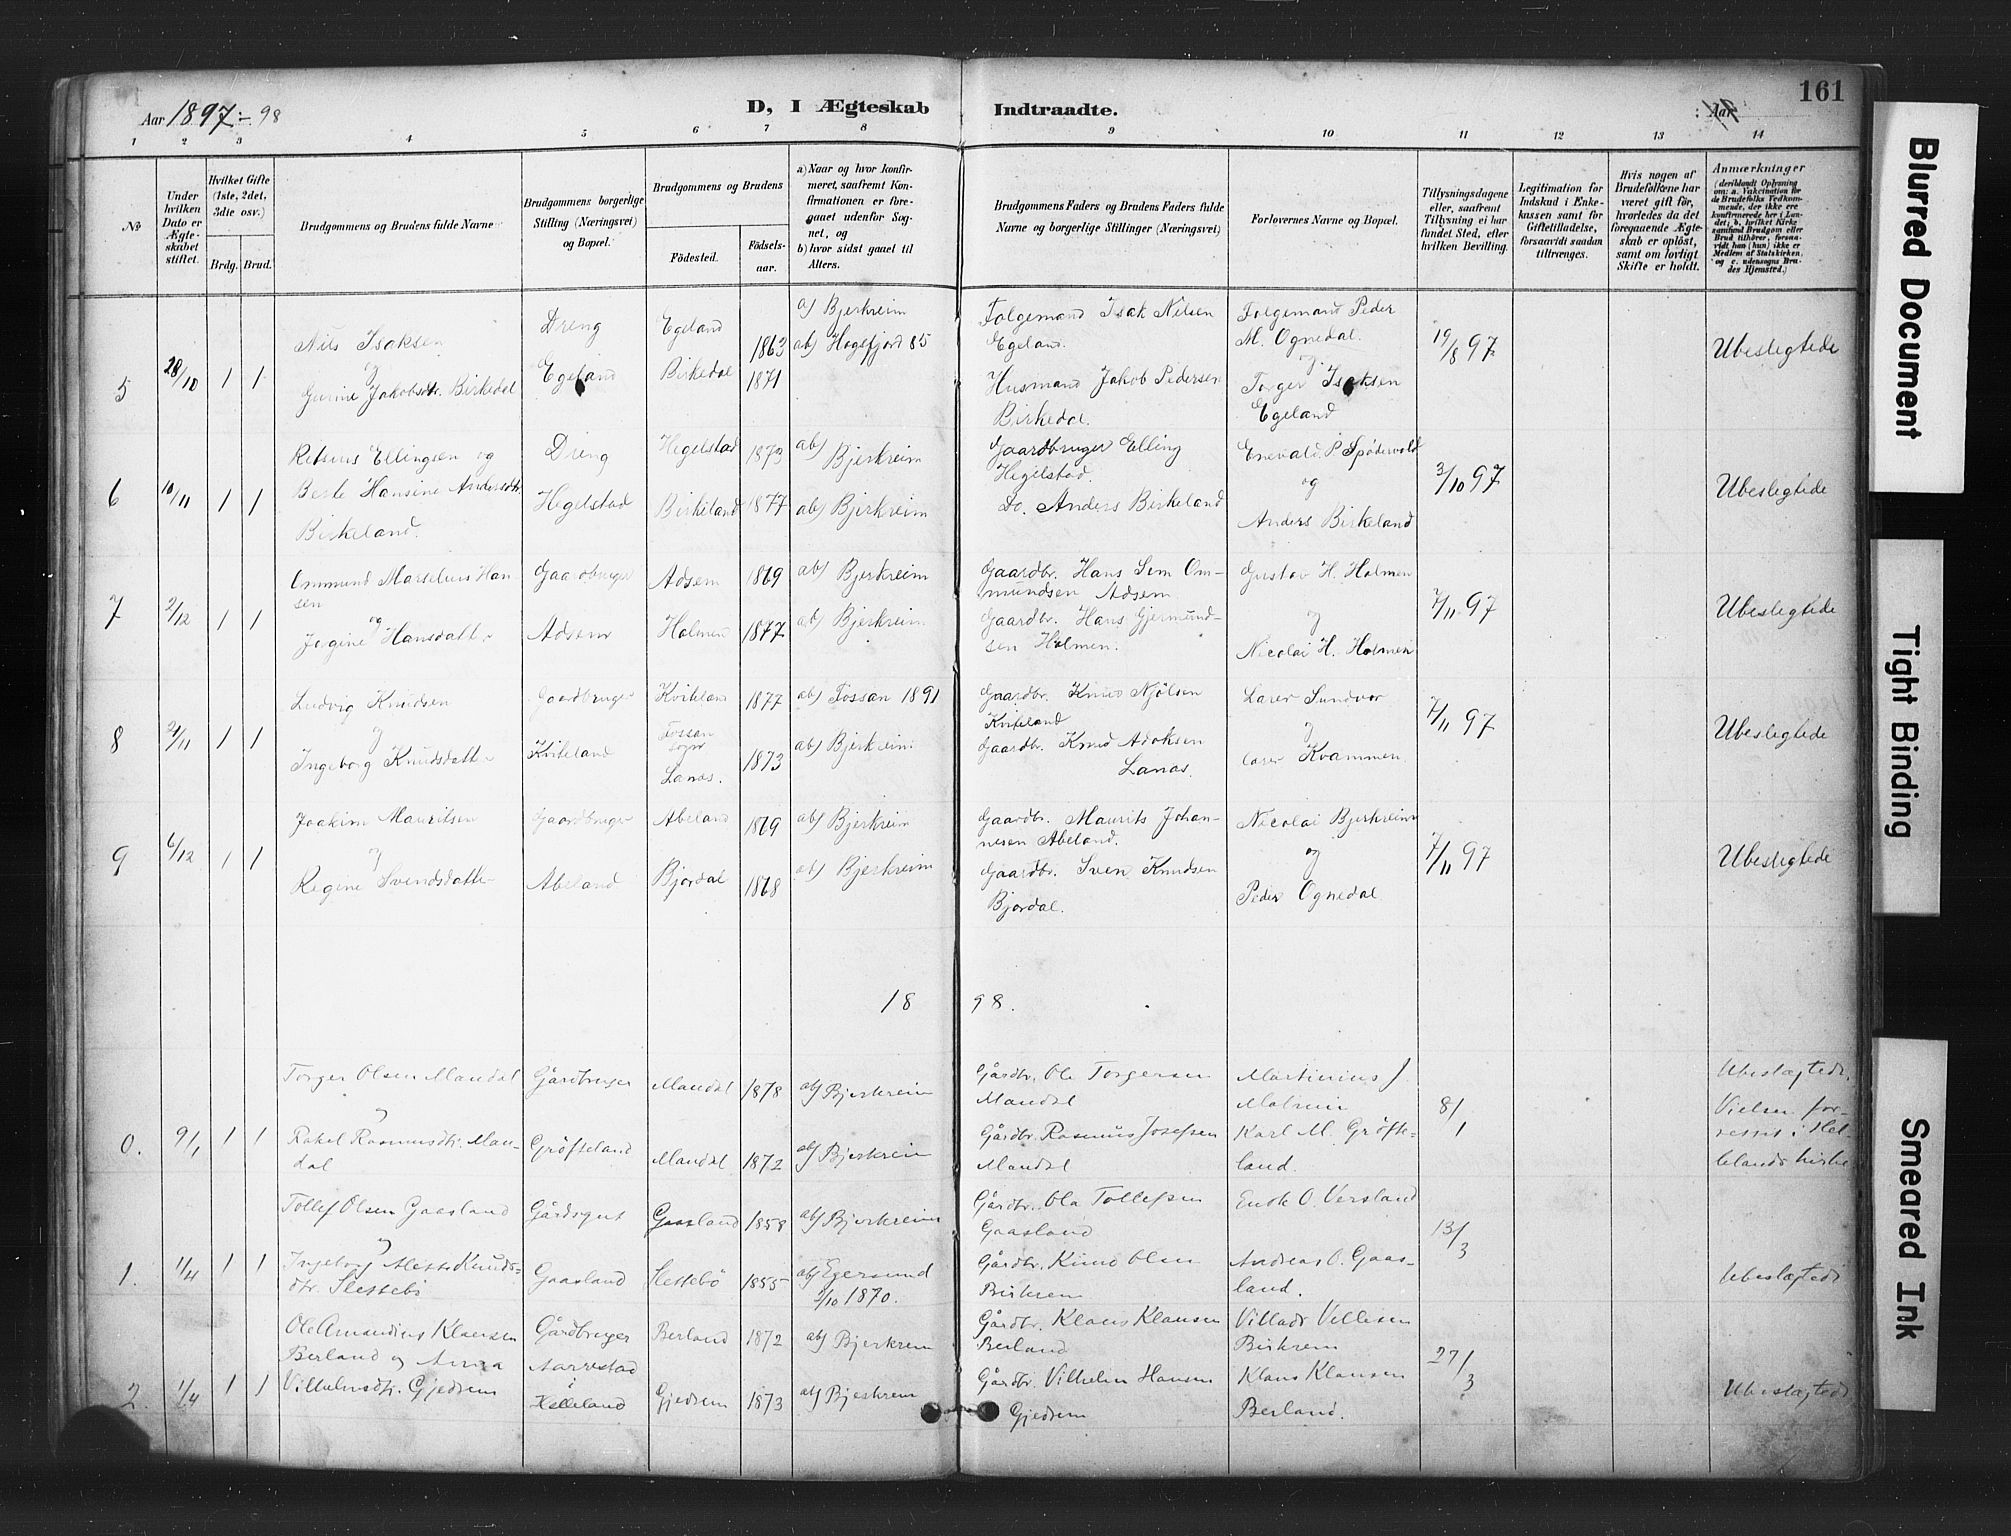 161
Aar 1897 - 98
D, I Ægteskab Indtraadte.
: Aar
1 2 3 4 5 6 7 8 9 10 11 12 13 14
№
Under hvilken Dato er Ægteskabet stiftet.
Hvilket Gifte (1ste, 2det, 3die osv.)
Brdg. Brud.
Brudgommens og Brudens fulde Navne
Brudgommens borgerlige Stilling (Næringsvei) og Bopæl.
Brudgommens og Brudens
Födested. Födselsaar.
a) Naar og hvor konfirmeret, saafremt Konfirmationen er foregaaet udenfor Sognet, og
b) hvor sidst gaaet til Alters.
Brudgommens Faders og Brudens Faders fulde Navne og borgerlige Stillinger (Næringsvei)
Forlovernes Navne og Bopæl.
Tillysningsdagene eller, saafremt Tillysning ei har fundet Sted, efter hvilken Bevilling.
Legitimation for Indskud i Enkekassen samt for Giftetilladelse, forsaavidt saadan tiltrænges.
Hvis nogen af Brudefolkene har været gift för, hvorledes da det foregaaende Ægteskab er oplöst, samt om lovligt Skifte er holdt.
Anmærkninger
(deriblandt Oplysning om: a. Vakcination for de Brudefolks Vedkommende, der ikke ere konfirmerede her i Landet; b. hvilket Kirkesamfund Brudgom eller Brud tilhörer, forsaavidt han (hun) ikke er Medlem af Statskirken, og c. udensogns Brudes Hjemsted.)
5 28/10 1 1 Nils Isaksen og Gurine Jakobsdtr. Birkedal Dreng Egeland Egeland Birkedal 1863 1871 a) Bjerkreim ab) Høgsfjord 85 Folgemand Isak Nilsen Egeland. Husmand Jakob Pedersen Birkedal. Folgemand Peder M. Ognedal. og Torger Isaksen Egeland 19/8 97 Ubeslegtede
6 10/11 1 1 Ellingsen og Berte Hansine Andersdtr. Birkeland. Dreng Hegelstad Hegelstad Birkeland 1873 1877 ab) Bjerkreim ab) Bjerkreim Gaardbruger Elling Hegelstad. Do. Anders Birkeland Enevald P. Spödervold og Anders Birkeland 3/10 97 Ubeslegtede
7 2/12 1 1 Ommund Marselius Hansen og Jorgine Hansdatter Gaardbruger Adsem Adsem Holmen 1869 1877 ab) Bjerkreim ab) Bjerkreim Gaardbr. Hans Sim Ommundsen Adsem Gaardbr. Hans Gjermundsen Holmen. Gustav H. Holmen og Nicolai H. Holmen 7/11 97 Ubeslegtede
8 24/11 1 1 Ludvig Knudsen og Ingeborg Knudsdatter Gaardbruger Kviteland Kviteland Fossan sogn Lanas. 1877 1873 ab) Fossan 1891 ab) Bjerkreim Gaardbr. Knud Njölsen Kviteland Gaardbr. Knud Lanas. Sundvor og Kvammen. 7/11 97 Ubeslegtede
9 6/12 1 1 Joakim Mauritsen og Regine Svendsdatter Gaardbruger Abeland Abeland Bjordal 1869 1868 ab) Bjerkreim ab) Bjerkreim Gaardbr. Maurits Johannesen Abeland. Gaardbr. Sven Knudsen Bjordal. Nicolai Bjerkreim og Peder Ognedal 7/11 97 Ubeslegtede
18 98.
0. 9/1 1 1 Torger Olsen Maudal og Rakel Rasmusdtr. Maudal Gårdbruger Gröfteland Maudal Maudal 1878 1872 ab) Bjerkreim ab) Bjerkreim Gårdbr. Ole Torgersen Maudal Gårdbr. Rasmus Josefsen Maudal Martinius J. Karl M. Gröfteland. 8/1 Ubeslægtede. Vielsen forrettet i Hellelands kirke
1. 1/4 1 1 Tollef Olsen Gaasland og Ingeborg Knudsdtr. Slettebö Gårdsgut Gaasland Gaasland Slettebö 1858 1855 ab) Bjerkreim ab) Egersund 2/10 1870. Gårdbr. Ola Tollefsen Gaasland Gårdbr. Knud Olsen Birkrem Endk O. Versland Andreas O. Gaasland. 13/3 Ubeslægtede
2. 1/4 1 1 Ole Amandius Klausen Berland og Anna Vilhelmsdtr. Gjedrem Gårdbruger Aarrestad i Helleland Berland Gjedrem 1872 1873 ab) Bjerkrem ab) Bjerkrem Gårdbr. Klaus Klausen Berland Gårdbr. Vilhelm Hansen Gjedrem Villads Villesen Birkrem Klaus Klausen Berland. 27/3 Ubeslægtede
Blurred Document
Tight Binding
Smeared Ink